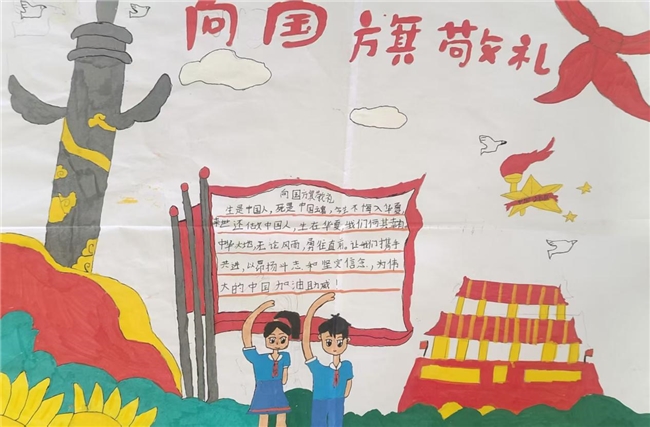 向国旗敬礼
向国旗敬礼
生是中国人，死是中国魂，今生不悔入华夏，
来世还做中国人，生在华夏我们何其有幸
中华大地，无论风雨，勇往直前，让我们携手
共进，以昂扬斗志和坚定信念，为伟
大的中国加油助威！